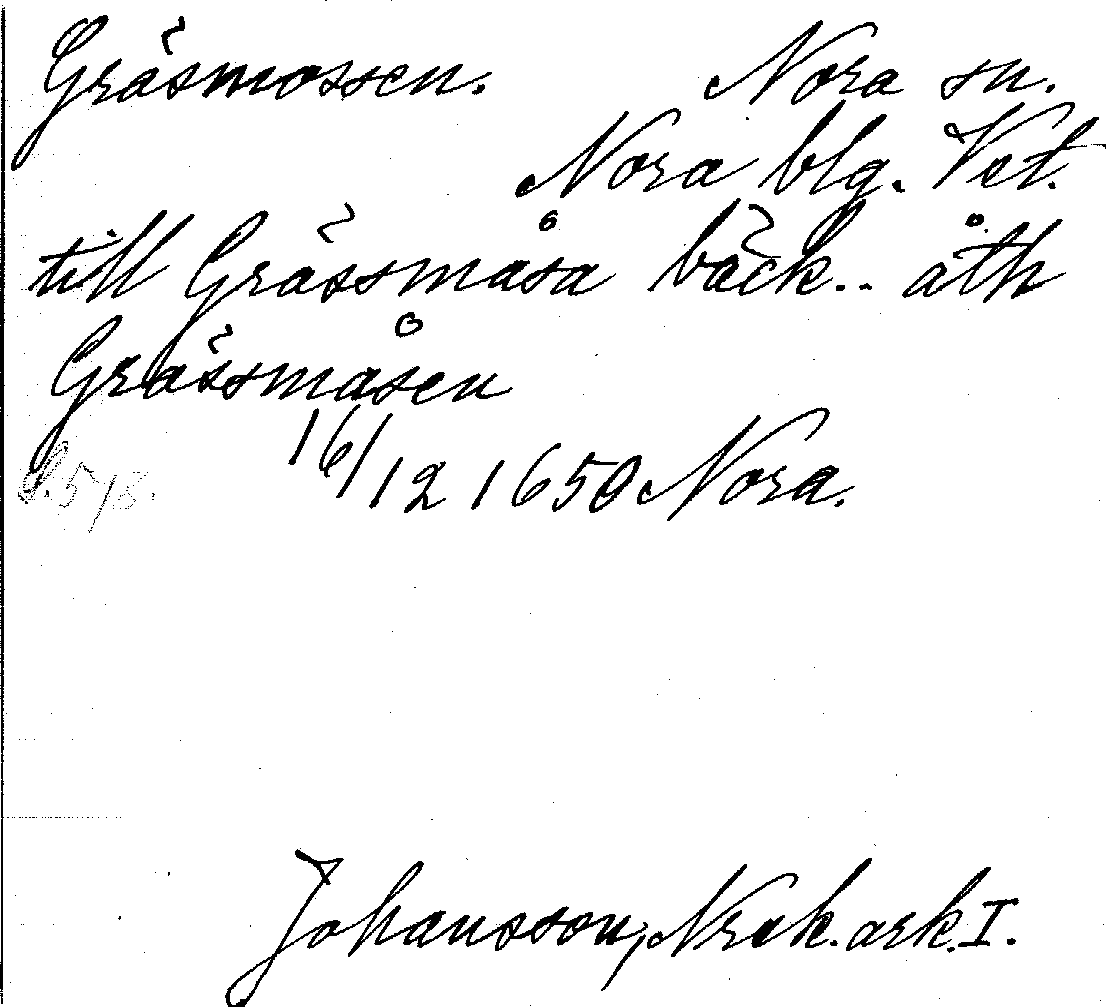 Gräsmossen. Nora sn.
Nora blg. Vst.
till Grässmåsa bäck.. åth
Grässmåsen
16/12 1650 Nora.
S. 578.
Johansson, Nrsk. ark. I.